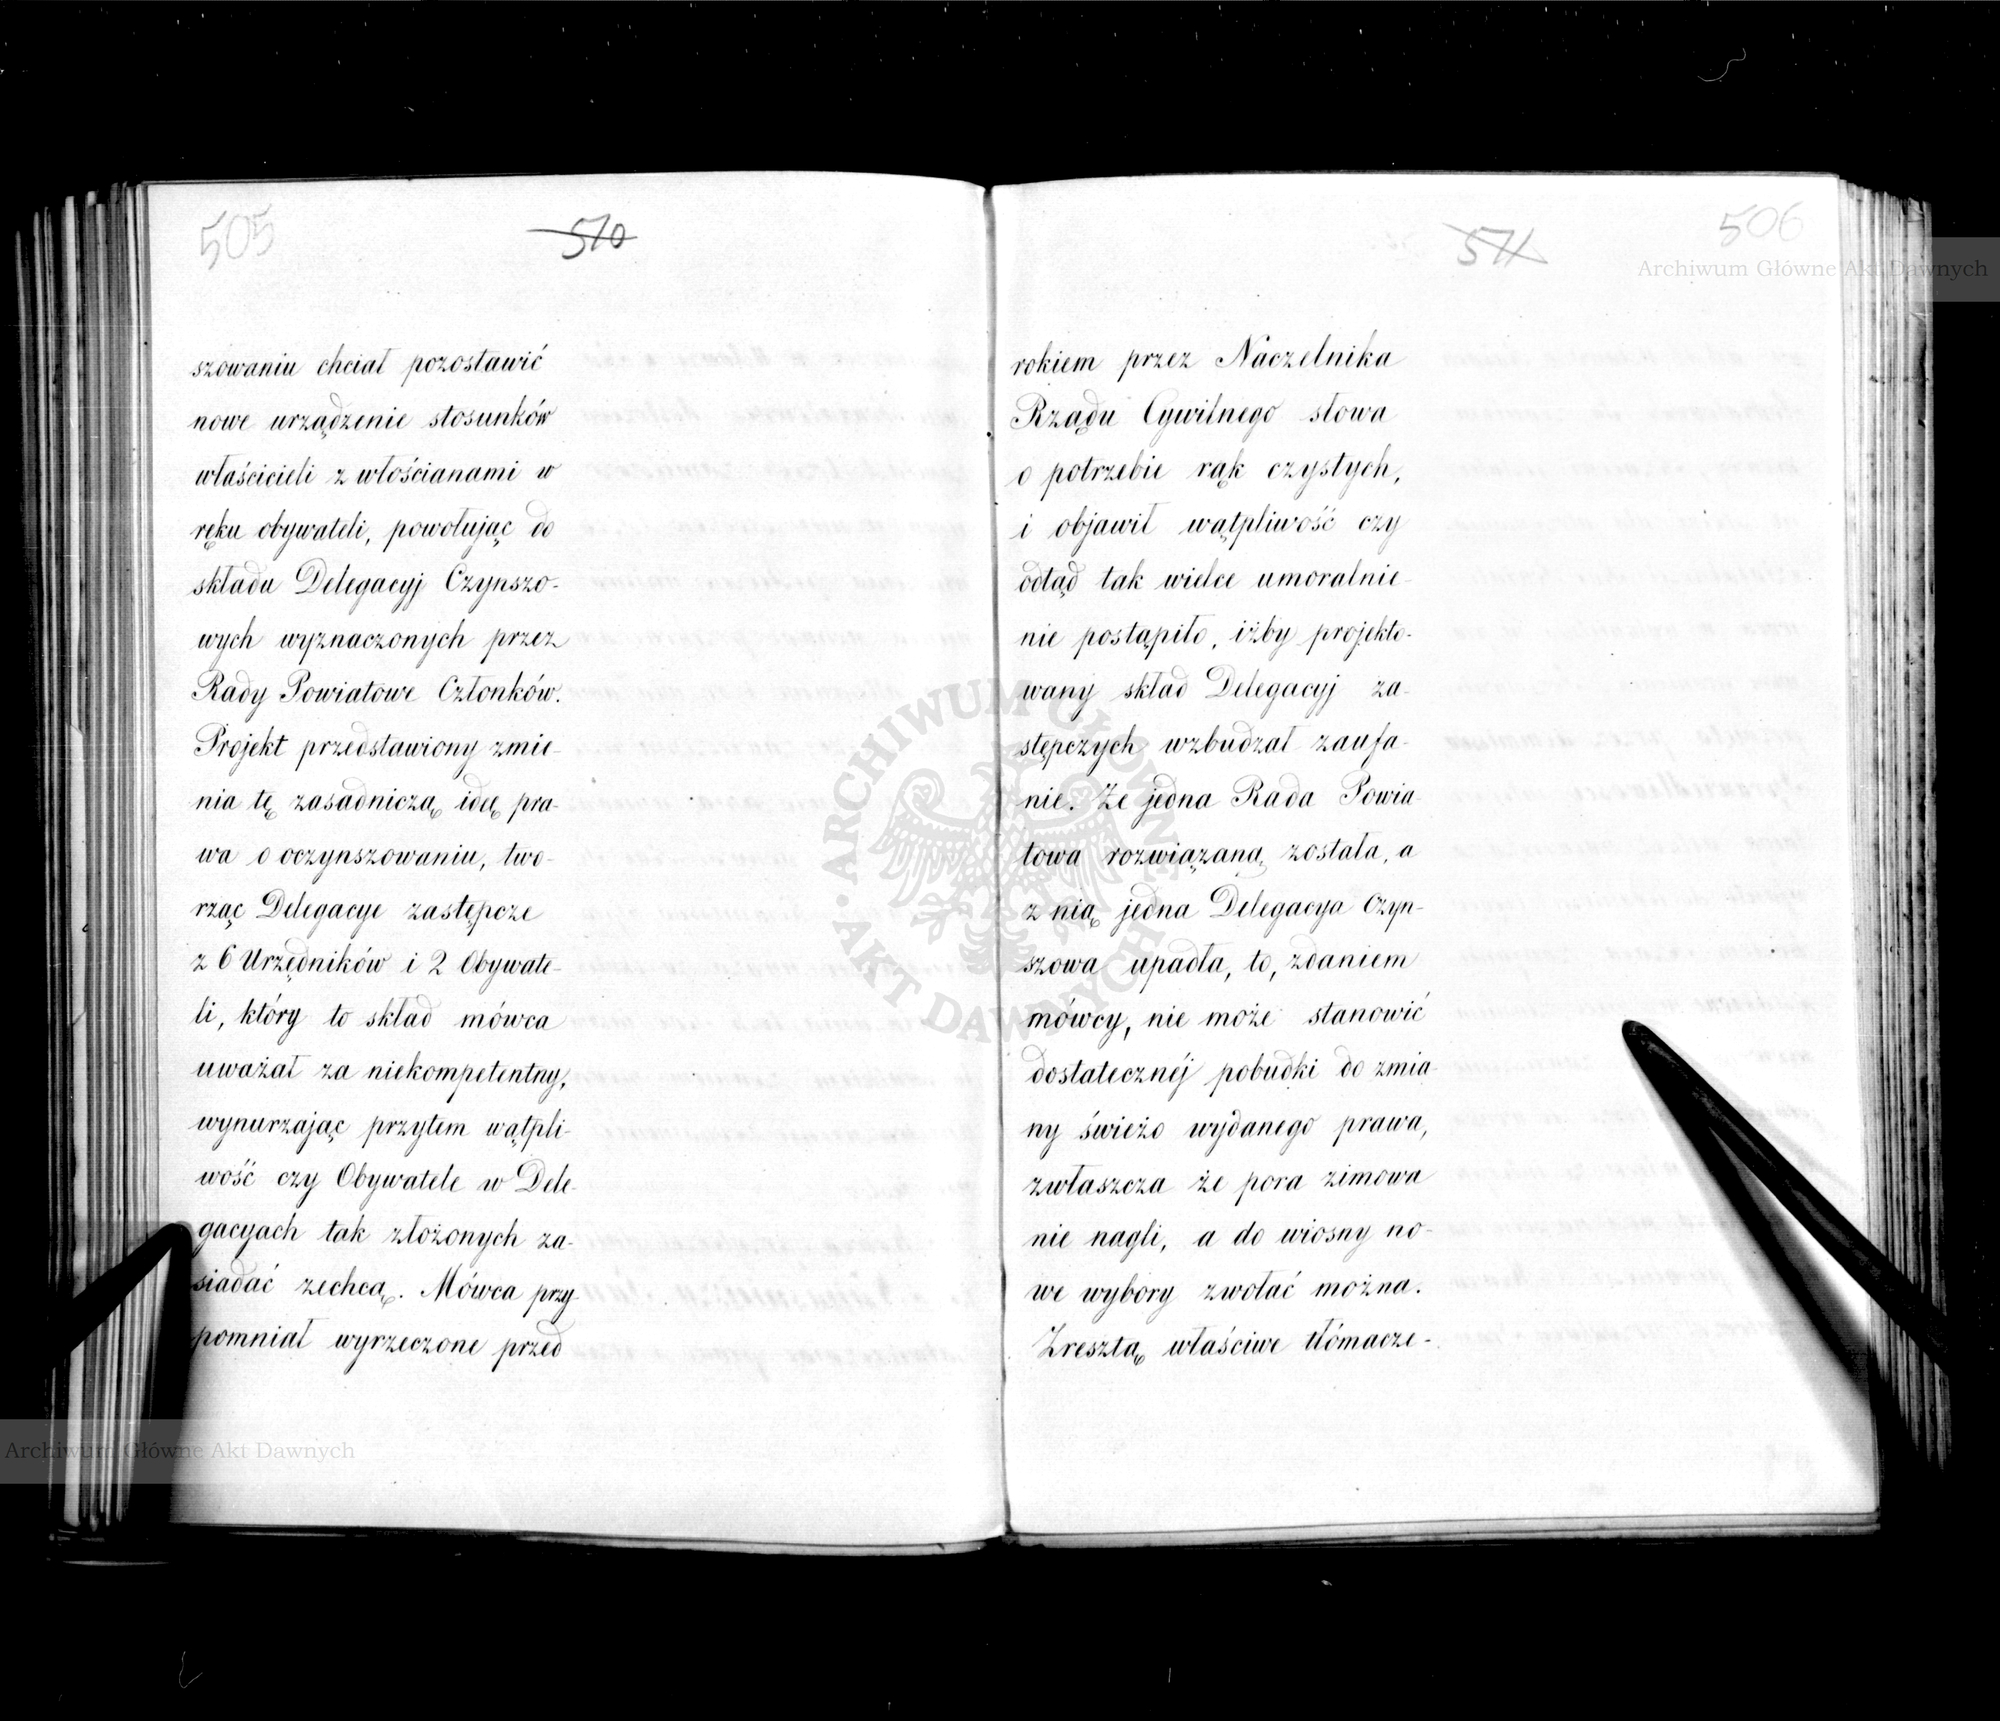 505
510
szowaniu chciał pozostawić
nowe urządzenie stosunków
właścicieli z włościanami w
ręku obywateli, powołując do
składu Delegacyj Czynszo-
wych wyznaczonych przez
Rady Powiatowe Członków.
Projekt przedstawiony zmie-
nia tę zasadniczą ideę pra-
wa o oczynszowaniu, two-
rząc Delegacye zastępcze
z 6 Urzędników i 2 Obywate-
li, który to skład mówca
uważał za niekompetentny,
wynurzając przytem wątpli-
wość czy Obywatele w Dele-
gacyach tak złożonych za-
siadać zechcą. Mówca przy-
pomniał wyrzeczone przed
511
506
rokiem przez Naczelnika
Rządu Cywilnego słowa
o potrzebie rąk czystych,
i objawił wątpliwość czy
odtąd tak wielce umoralnie-
nie postąpiło, iżby projekto-
wany skład Delegacyj za-
stępczych wzbudzał zaufa-
nie. Że jedna Rada Powia-
towa rozwiązaną została, a
z nią jedna Delegacya Czyn-
szowa upadła, to, zdaniem
mówcy, nie może stanowić
dostatecznéj pobudki do zmia-
ny świeżo wydanego prawa,
zwłaszcza że pora zimowa
nie nagli, a do wiosny no-
we wybory zwołać można.
Zresztą właściwe tłómacze-
Archiwum Główne Akt Dawnych
ARCHIWUM GŁÓWNE AKT DAWNYCH
Archiwum Główne Akt Dawnych